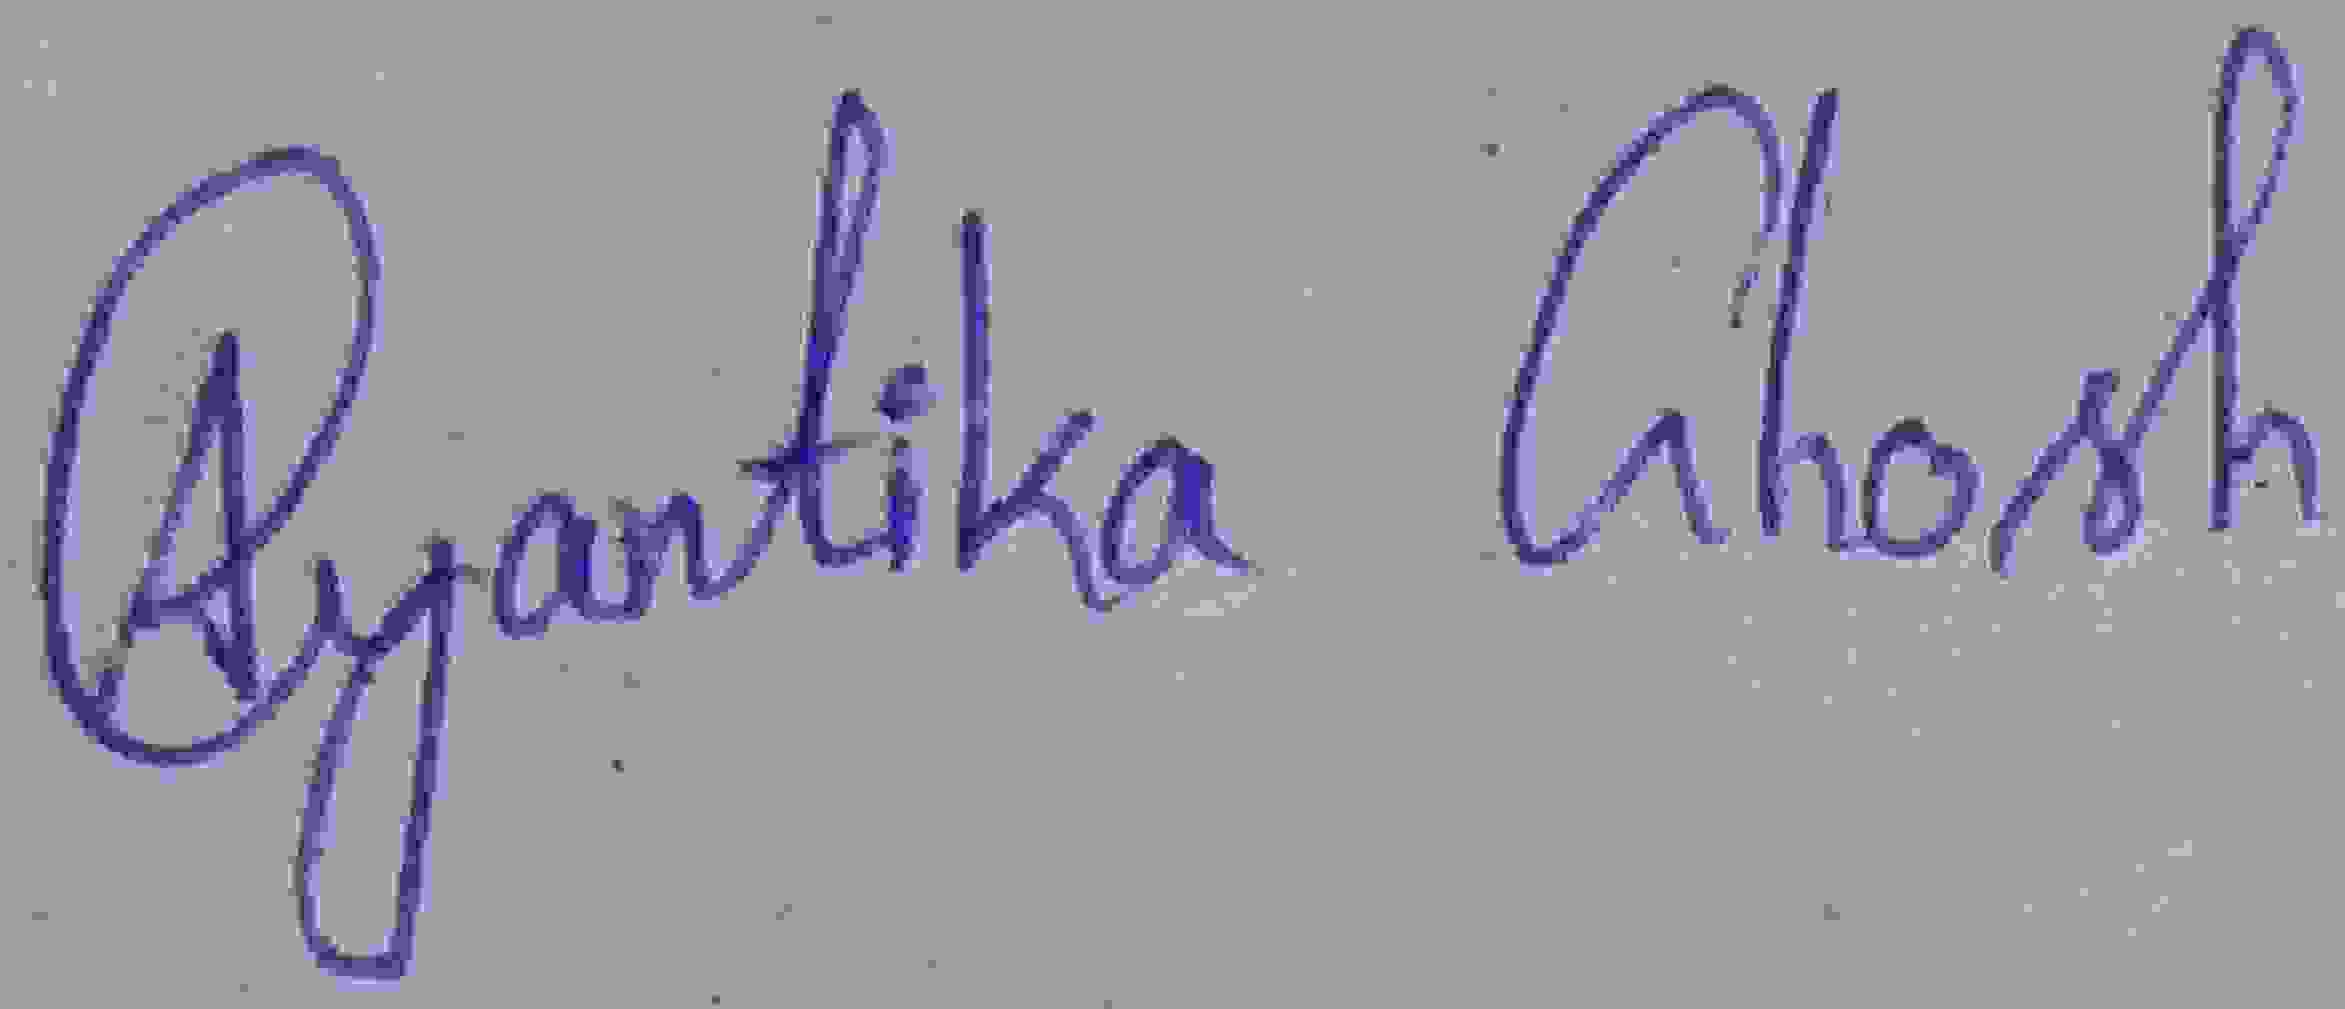 Ayantika Ghosh